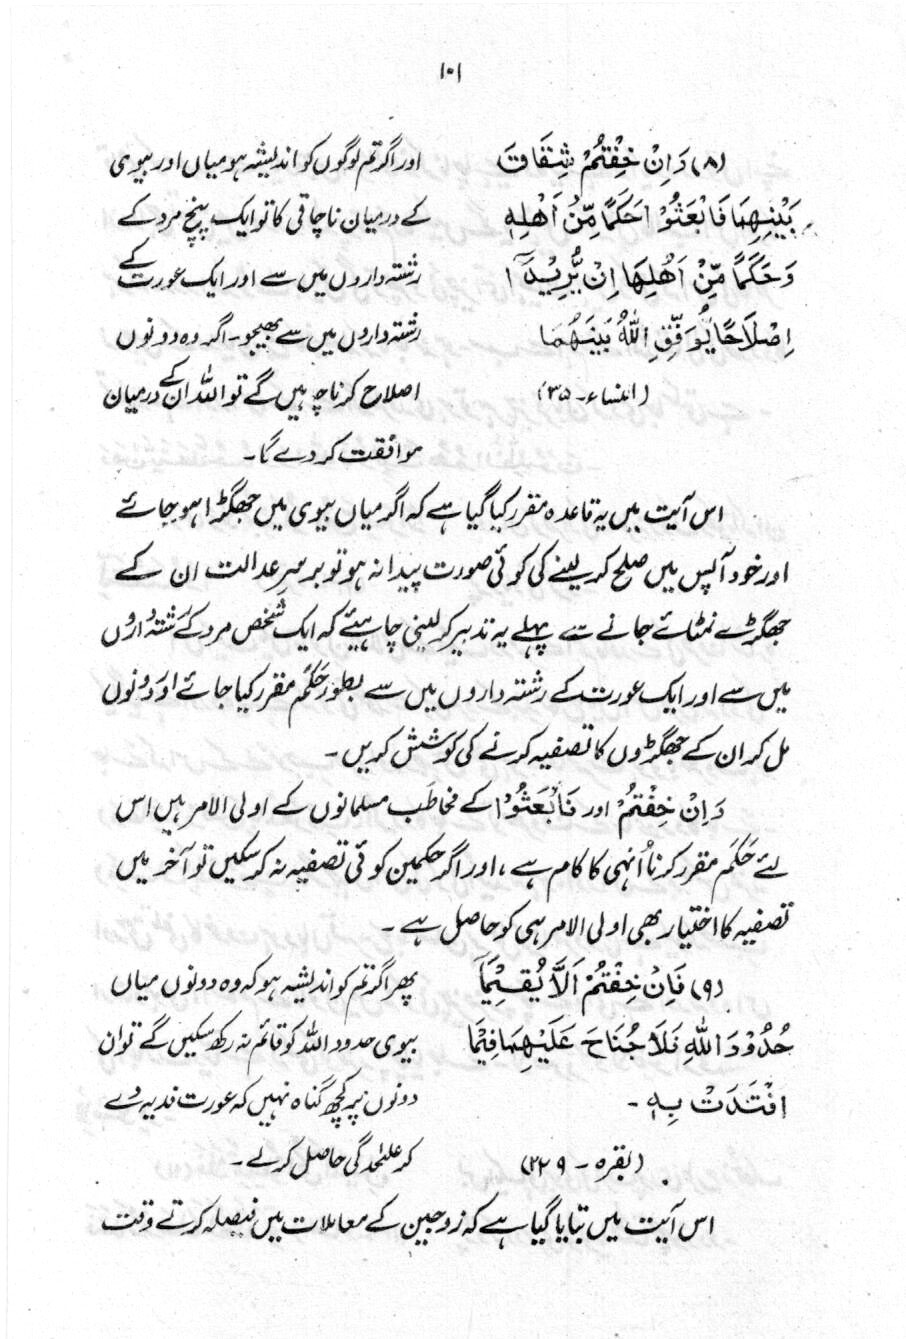 ۱۰۱
(۸) وَاِنْ خِفْتُمْ شِقَاقَ
بَيْنِهِمَا فَابْعَثُوْا حَكَمًا مِّنْ اَهْلِهٖ
وَحَكَمًا مِّنْ اَهْلِهَا اِنْ يُّرِيْدَآ
اِصْلَاحًا يُّوَفِّقِ اللّٰهُ بَيْنَهُمَا
(النساء - ۳۵)
اور اگر تم لوگوں کو اندیشہ ہو میاں اور بیوی
کے درمیان ناچاقی کا تو ایک پنچ مرد کے
رشتہ داروں میں سے اور ایک عورت کے
رشتہ داروں میں سے بھیجو۔ اگر وہ دونوں
اصلاح کرنا چاہیں گے تو اللہ ان کے درمیان
موافقت کر دے گا۔
اس آیت میں یہ قاعدہ مقرر کیا گیا ہے کہ اگر میاں بیوی میں جھگڑا ہو جائے
اور خود آپس میں صلح کر لینے کی کوئی صورت پیدا نہ ہو تو برسرِ عدالت ان کے
جھگڑے نمٹائے جانے سے پہلے یہ تدبیر کر لینی چاہیئے کہ ایک شخص مرد کے رشتہ داروں
میں سے اور ایک عورت کے رشتہ داروں میں سے بطور حَکَم مقرر کیا جائے اور دونوں
مل کر ان کے جھگڑوں کا تصفیہ کرنے کی کوشش کریں۔
وَاِنْ خِفْتُمْ اور فَابْعَثُوْا کے مخاطَب مسلمانوں کے اولی الامر ہیں اس
لئے حَکَم مقرر کرنا اُنہی کا کام ہے، اور اگر حکمین کوئی تصفیہ نہ کر سکیں تو آخر میں
تصفیہ کا اختیار بھی اولی الامر ہی کو حاصل ہے۔
(۹) فَاِنْ خِفْتُمْ اَلَّا يُقِيْمَا
حُدُوْدَ اللّٰهِ فَلَا جُنَاحَ عَلَيْهِمَا فِيْمَا
افْتَدَتْ بِهٖ۔
(بقرہ - ۲۲۹)
پھر اگر تم کو اندیشہ ہو کہ وہ دونوں میاں
بیوی حدود اللہ کو قائم نہ رکھ سکیں گے تو ان
دونوں پر کچھ گناہ نہیں کہ عورت فدیہ دے
کر علیٰحدگی حاصل کر لے۔
اس آیت میں بتایا گیا ہے کہ زوجین کے معاملات میں فیصلہ کرتے وقت